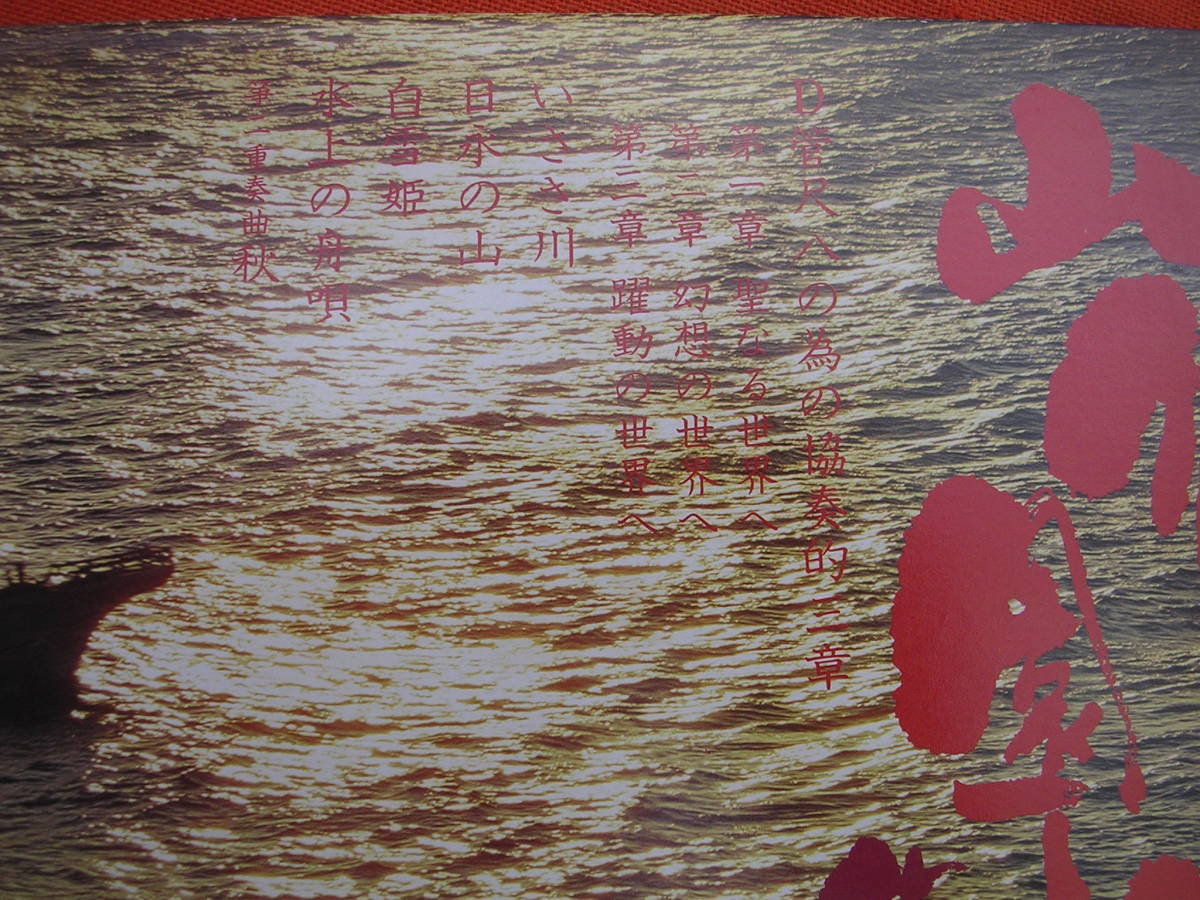 D管尺八の為の協奏的三章
第一章 聖なる世界へ
第二章 幻想の世界へ
第三章 躍動の世界へ
いさき川
日永の山
白雪姫
水上の舟唄
箏二重奏曲秋